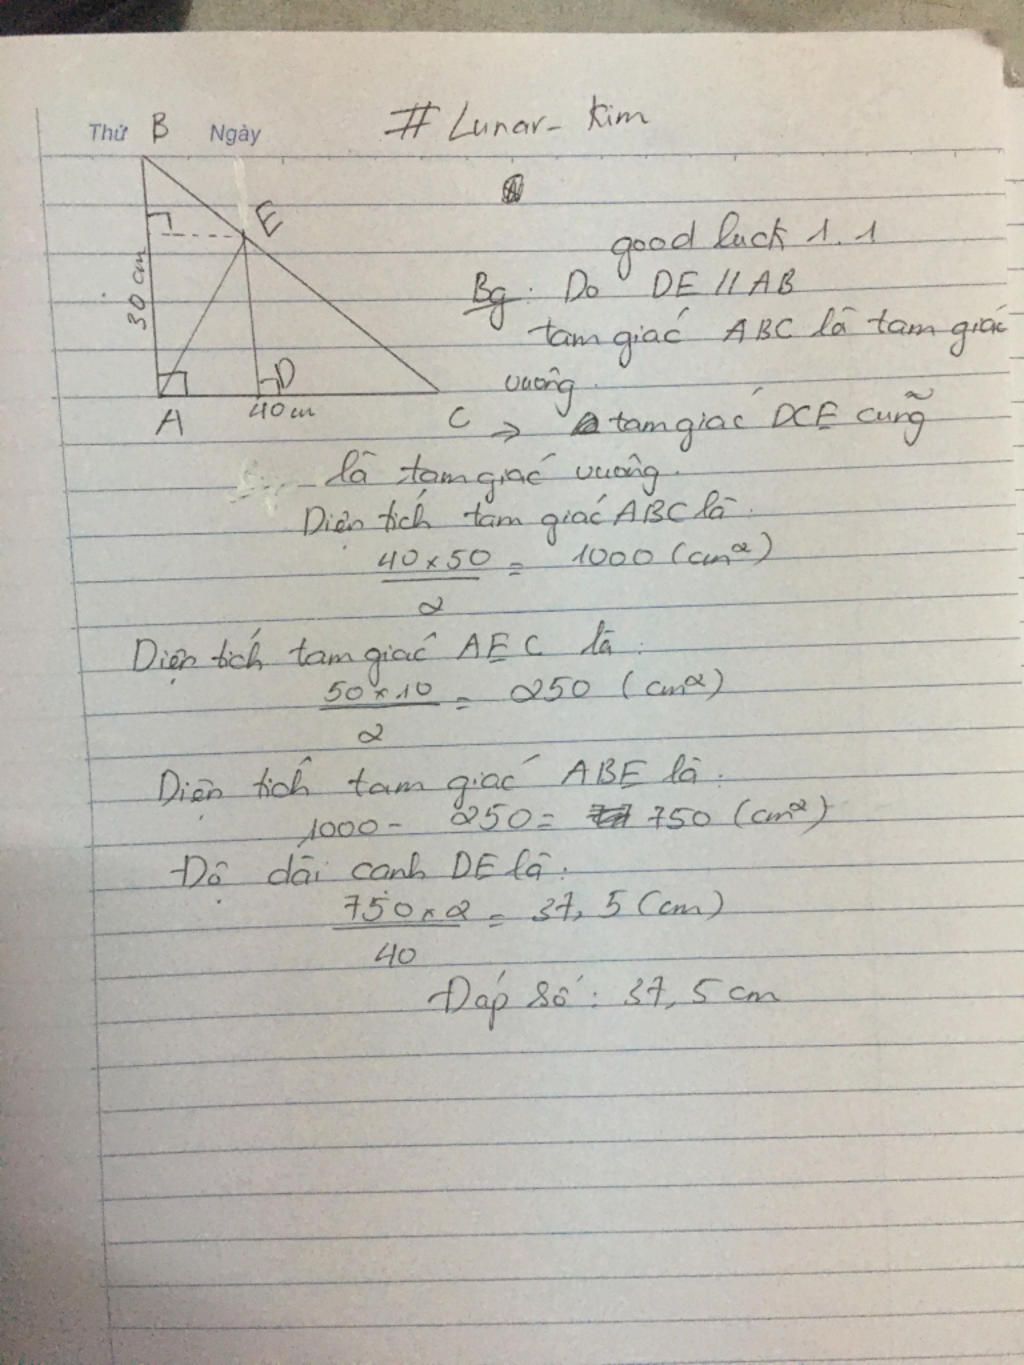 Thứ B Ngày
# Lunar_ Kim
E
good luck 1.1
30 cm
Bg: Do DE // AB
tam giác ABC là tam giác
vuông.
D
A
40cm
C
→ tam giác DCE cũng
là tam giác vuông.
Diện tích tam giác ABC là:
40 x 50 / 2 = 1000 (cm²)
Diện tích tam giác AEC là:
50 x 10 / 2 = 250 (cm²)
Diện tích tam giác ABE là:
1000 - 250 = 750 (cm²)
Độ dài cạnh DE là:
750 x 2 / 40 = 37,5 (cm)
Đáp số: 37,5 cm